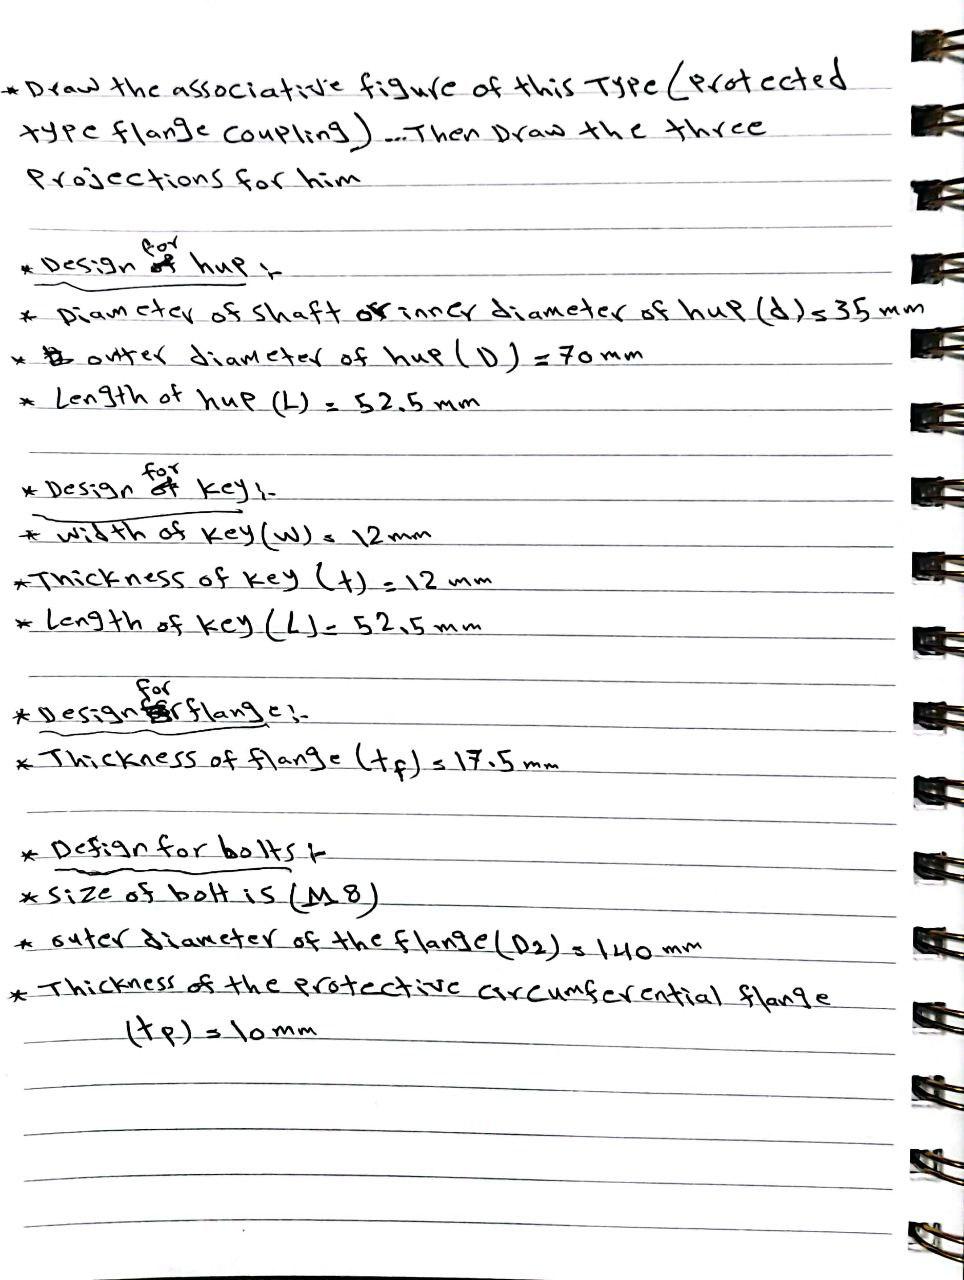 * Draw the associative figure of this Type (Protected
type flange coupling) ... Then Draw the three
Projections for him
* Design for hup :-
* Diameter of shaft or inner diameter of hup (d) = 35 mm
* outer diameter of hup (D) = 70 mm
* Length of hup (L) = 52.5 mm
* Design for key :-
* width of key (w) = 12 mm
* Thickness of key (t) = 12 mm
* Length of key (L) = 52.5 mm
* Design for flange :-
* Thickness of flange (tf) = 17.5 mm
* Design for bolts :-
* Size of bolt is (M8)
* outer diameter of the flange (D2) = 140 mm
* Thickness of the protective circumferential flange
(tp) = 10 mm